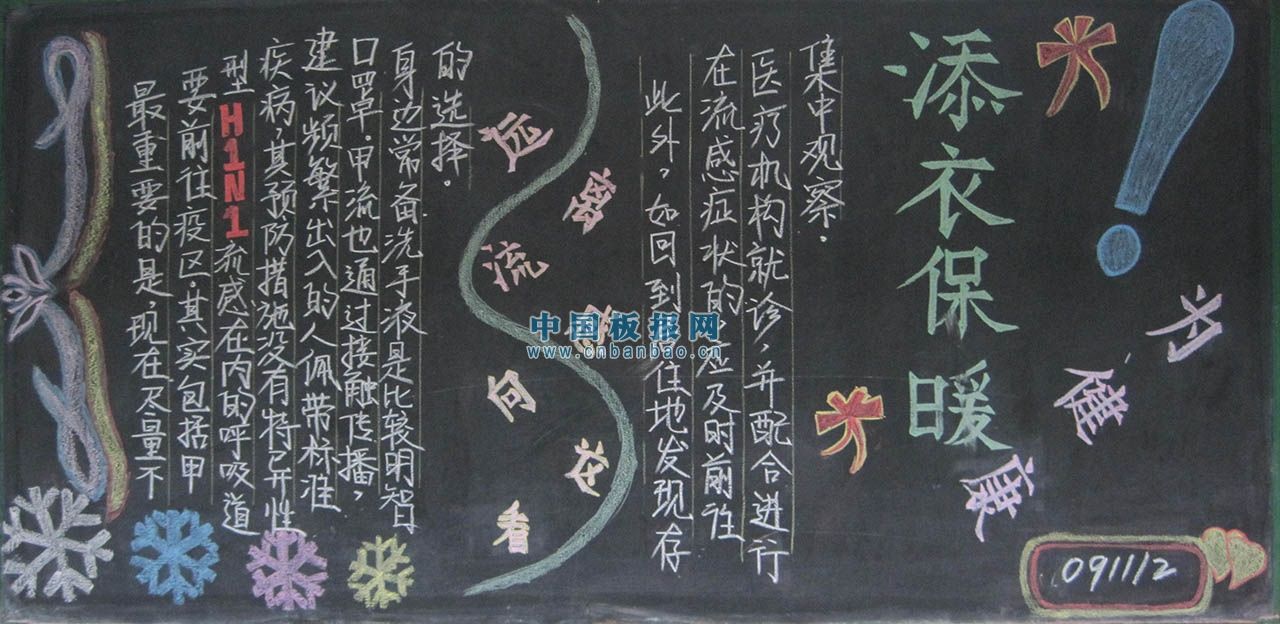 最重要的是,现在尽量不
要前往疫区.其实包括甲
型H1N1流感在内的呼吸道
疾病,其预防措施没有特异性
建议频繁出入的人佩带标准
口罩.甲流也通过接触传播,
身边常备洗手液是比较明智
的选择.
远离流感向看
此外,如回到居住地发现存
在流感症状的,应及时前往
医疗机构就诊,并配合进行
集中观察.
添衣保暖
为健康
0911/2
中国板报网
www.cnbanbao.cn